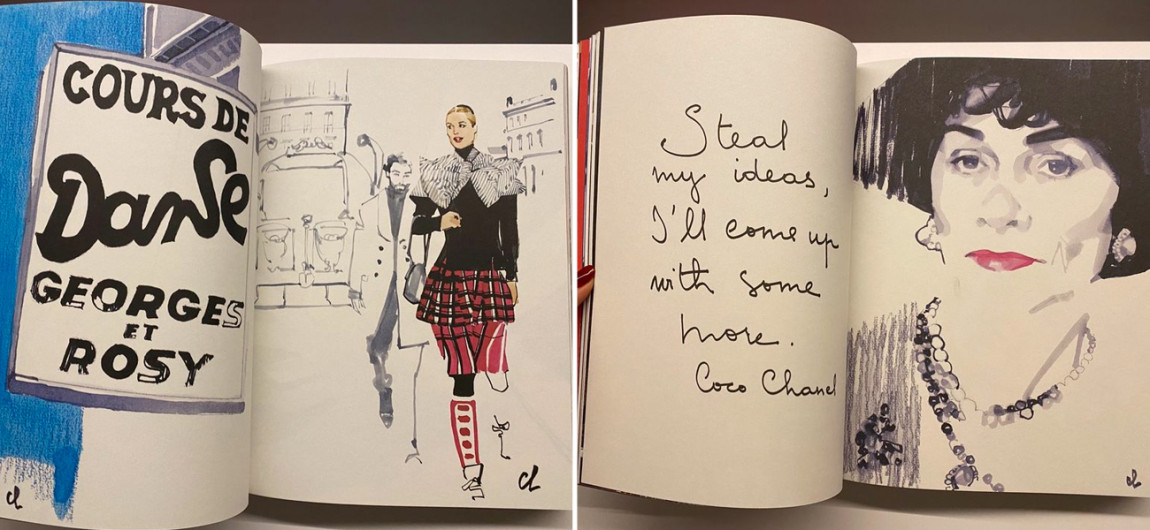 COURS DE
Danse
GEORGES
ET
ROSY
CL
CL
Steal
my ideas,
I'll come up
with some
more.
Coco Chanel
CL